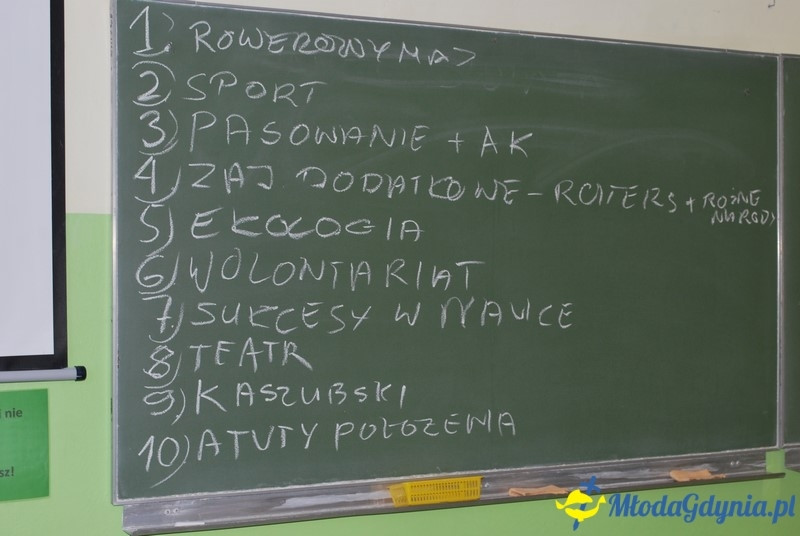 1) ROWEROWY MAJ
2) SPORT
3) PASOWANIE + AK
4) ZAJ DODATKOWE - ROTTERS + ROŻNE
NAROD
5) EKOLOGIA
6) WOLONTARIAT
7) SUKCESY W NAUCE
8) TEATR
9) KASZUBSKI
10) ATUTY POŁOZENIA
nie
sz!
MłodaGdynia.pl